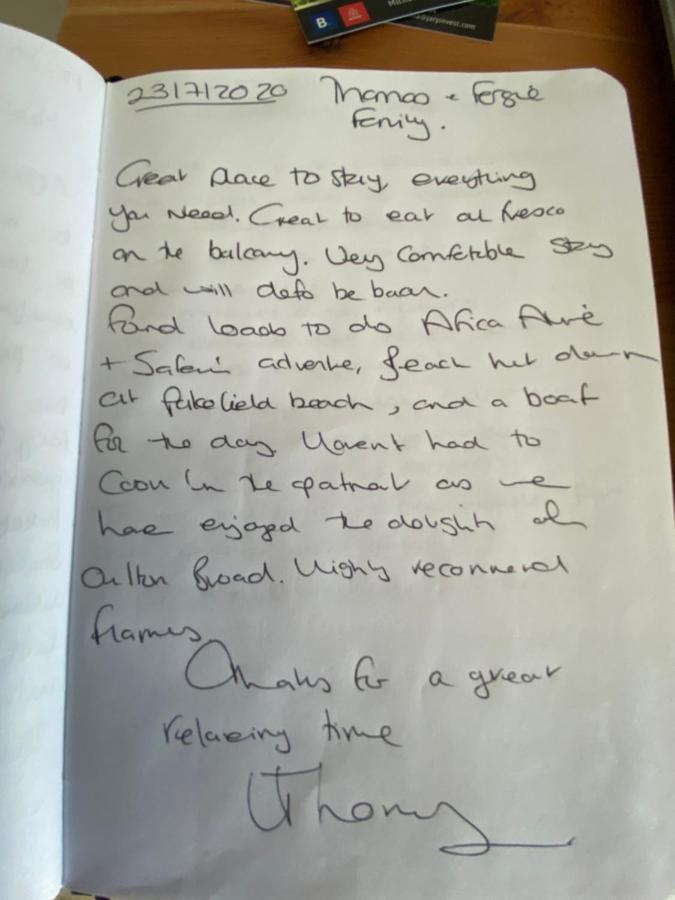 B.
@jaryinvest.com
23/7/2020 Thomas + Fergie
Family.
Great place to stay, everything
you need. Great to eat al fresco
on the balcony. Very comfortable stay
and will defo be back.
Found loads to do Africa Alive
+ Safari adventure, beach hut down
at Pakefield beach, and a boat
for the day. Havent had to
Cook in the apatment as we
have enjoyed the delights of
Oulton Broad. Highly recommend
flames.
Thanks for a great
relaxing time
Thomas